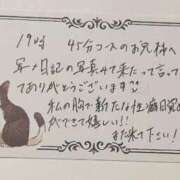 19時 45分コースのお兄様へ
写メ日記の写真見て来たって言って
てありがとうございます♡
私の胸で新たな性癖目覚め
ができて嬉しい!!
また来て下さい!